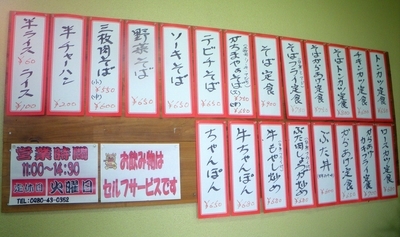 トンカツ定食
チキンカツ定食
そばからあげ定食
そばフライ定食
そばトンカツ定食
そば定食
¥500
テビチそば
¥650
ソーキそば
¥650
野菜そば
¥650
三枚肉そば
(小) ¥350
半チャーハン
¥200
半ライス ¥60
ライス ¥100
ロースカツ定食
からあげ定食
ぶた丼
ぶた肉しょうが炒め
牛もやし炒め
牛ちゃんぽん
ちゃんぽん
営業時間
11:00〜14:30
定休日 火曜日
TEL:0980-43-0352
お飲み物は
セルフサービスです